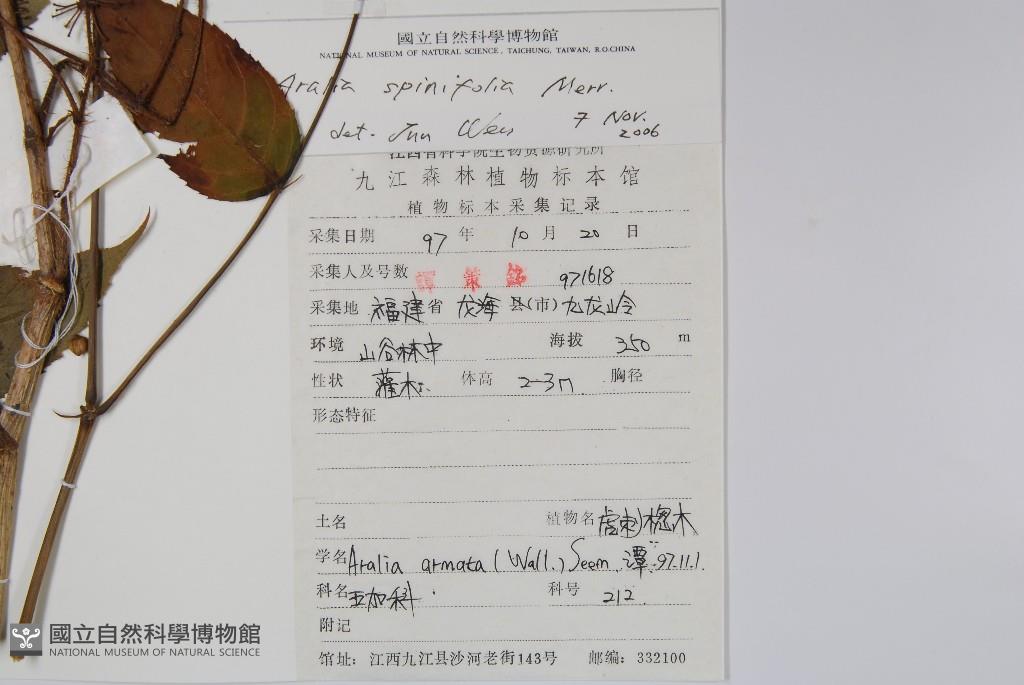 國立自然科學博物館
NATIONAL MUSEUM OF NATURAL SCIENCE, TAICHUNG, TAIWAN, R.O.CHINA
Aralia spinifolia Merr.
det. Jun Wen 7 Nov. 2006
江西省科学院生物资源研究所
九江森林植物标本馆
植物标本采集记录
采集日期 97 年 10 月 20 日
采集人及号数 譚策銘 971618
采集地 福建 省 龙海 县(市) 九龙岭
环境 山谷林中 海拔 350 m
性状 灌木 体高 2-3m 胸径
形态特征
土名 植物名 虎刺楤木
学名 Aralia armata (Wall.) Seem 譚 97.11.1.
科名 五加科 科号 212
附记
馆址：江西九江县沙河老街143号 邮编：332100
國立自然科學博物館
NATIONAL MUSEUM OF NATURAL SCIENCE